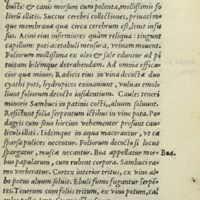 busti: & canis morsum cum polenta, mollissimis fo
liorū illitis. Succus cerebri collectiones, priuatim-
que membranas quæ circa cerebrum est, lenit infu
sus. Acini eius infirmiores quàm reliqua: tingunt
capillum: poti acetabuli mensura, vrinam mouent.
Foliorum mollissima ex oleo & sale eduntur ad pi
tuitam bilémque detrahendam. Ad omnia efficac-
cior quæ minor. Radicis eius in vino decoctæ duo
cyathi poti, hydropicos exinaniunt, vuluas emolli
unt foliorum decocto insidentium. Caules teneri
minoris Sambuci in patina cocti, aluum soluunt.
Resistunt folia serpentum ictibus in vino pota. Po-
dagris cum seuo hircino vehementer prosunt cau
liculi illiti. Iidémque in aqua macerantur, vt ea
sparsa pulices necentur. Foliorum decocto si locus
spargatur, muscæ necantur. Boa appellatur mor Boa.
bus papularum, cum rubent corpora. Sambuci ra-
mo verberatur. Cortex interior tritus, ex vino al-
bo potus aluum soluit. Ebuli fumo fugantur serpē
tes. Tenerum cum folijs tritum, ex vino potum, cal